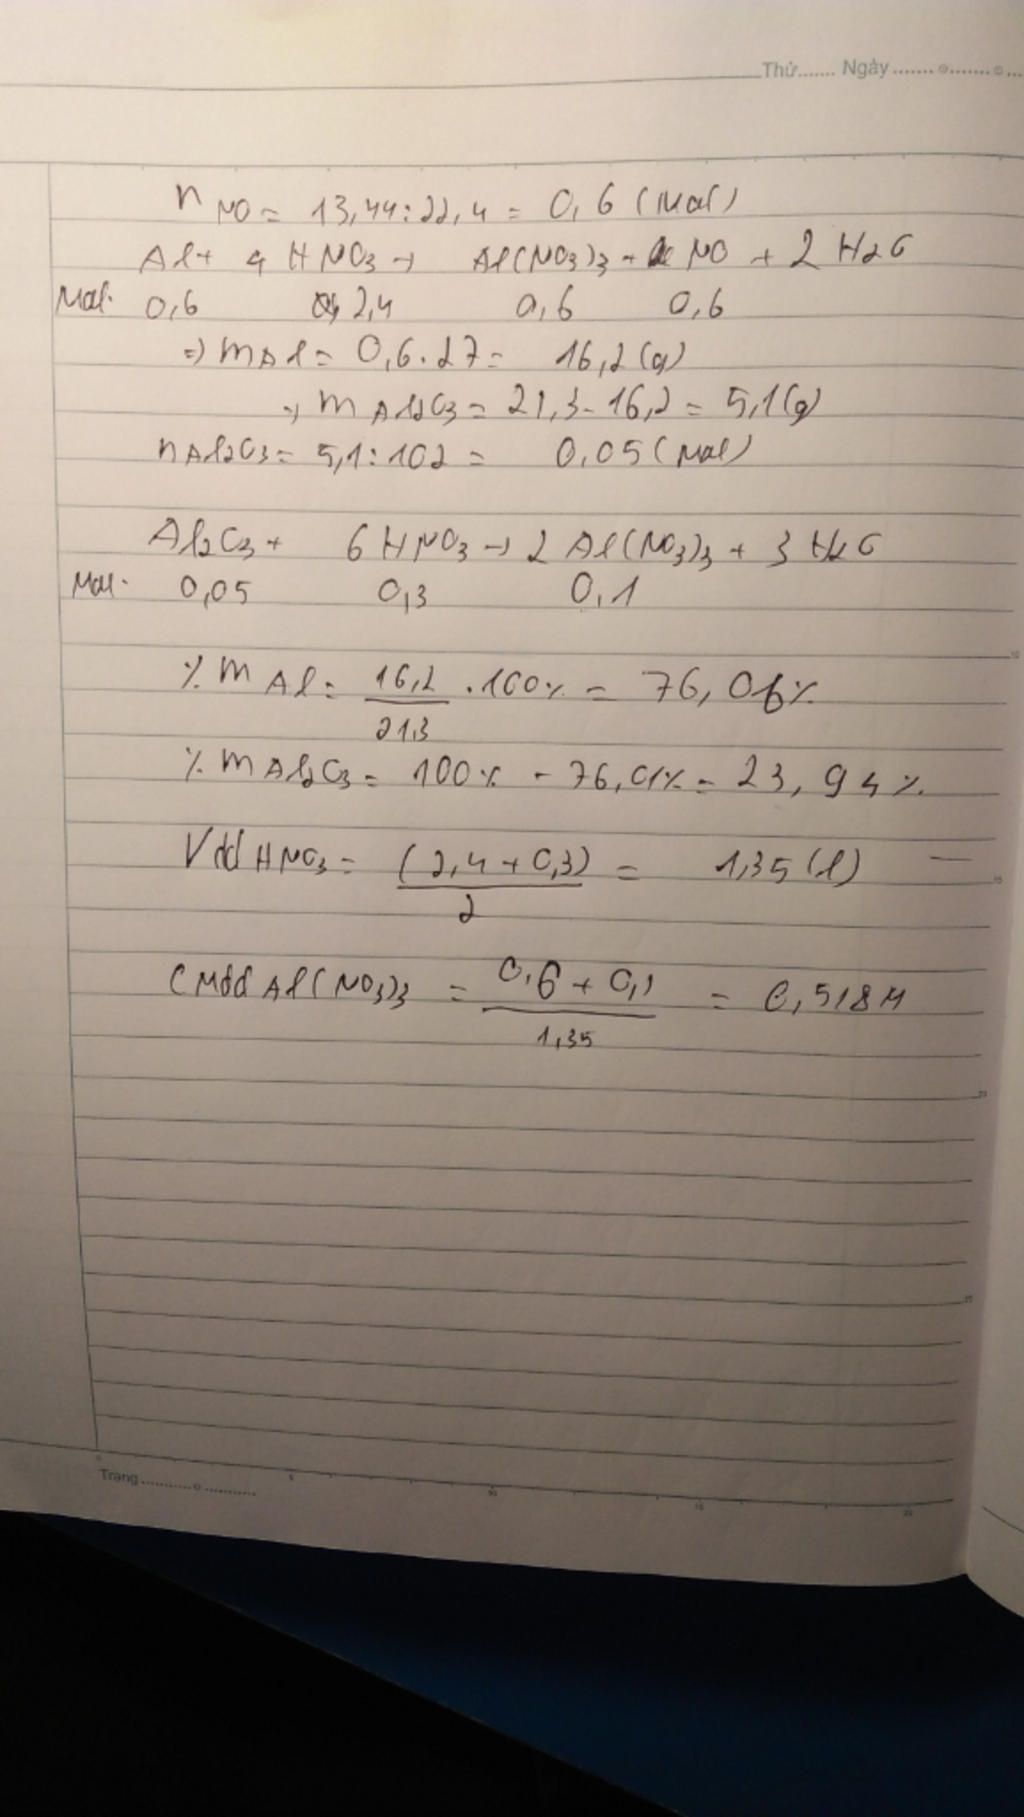 Thứ....... Ngày
n NO = 13,44:22,4 = 0,6 (Mol)
Al + 4 HNO3 → Al(NO3)3 + NO + 2 H2O
Mol: 0,6 2,4 0,6 0,6
=) m Al = 0,6.27 = 16,2(g)
=) m Al2O3 = 21,3 - 16,2 = 5,1(g)
n Al2O3 = 5,1:102 = 0,05 (Mol)
Al2O3 + 6 HNO3 → 2 Al(NO3)3 + 3 H2O
Mol: 0,05 0,3 0,1
% m Al = 16,2 / 21,3 . 100% = 76,06%
% m Al2O3 = 100% - 76,01% = 23,94%
Vdd HNO3 = (2,4 + 0,3) / 2 = 1,35 (l)
CMdd Al(NO3)3 = 0,6 + 0,1 / 1,35 = 0,518M
Trang